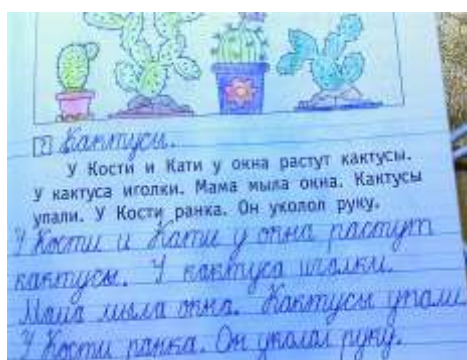 2 Кактусы.
У Кости и Кати у окна растут кактусы.
У кактуса иголки. Мама мыла окна. Кактусы
упали. У Кости ранка. Он уколол руку.
У Кости и Кати у окна растут
кактусы. У кактуса иголки.
Мама мыла окна. Кактусы упали
У Кости ранка. Он уколол руку.